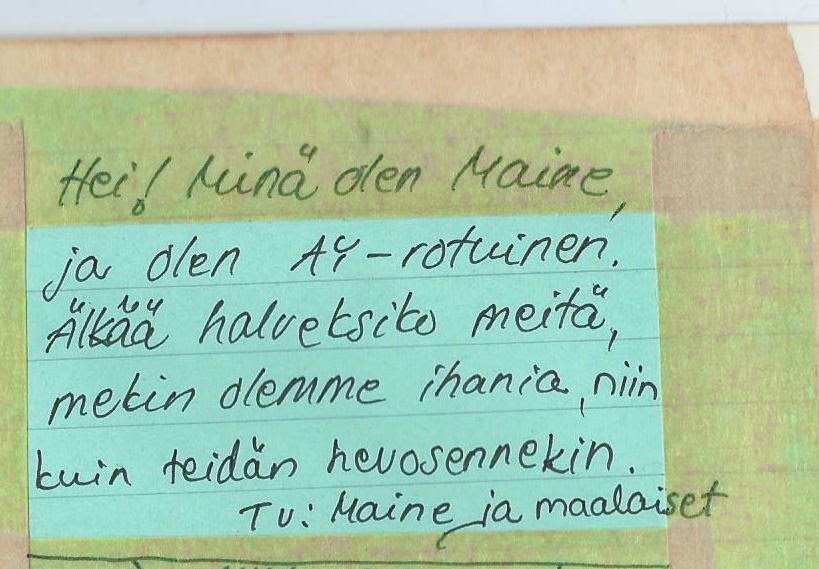 Hei! Minä olen Maine,
ja olen AY-rotuinen.
Älkää halveksiko meitä,
mekin olemme ihania, niin
kuin teidän hevosennekin.
Tv: Maine ja maalaiset